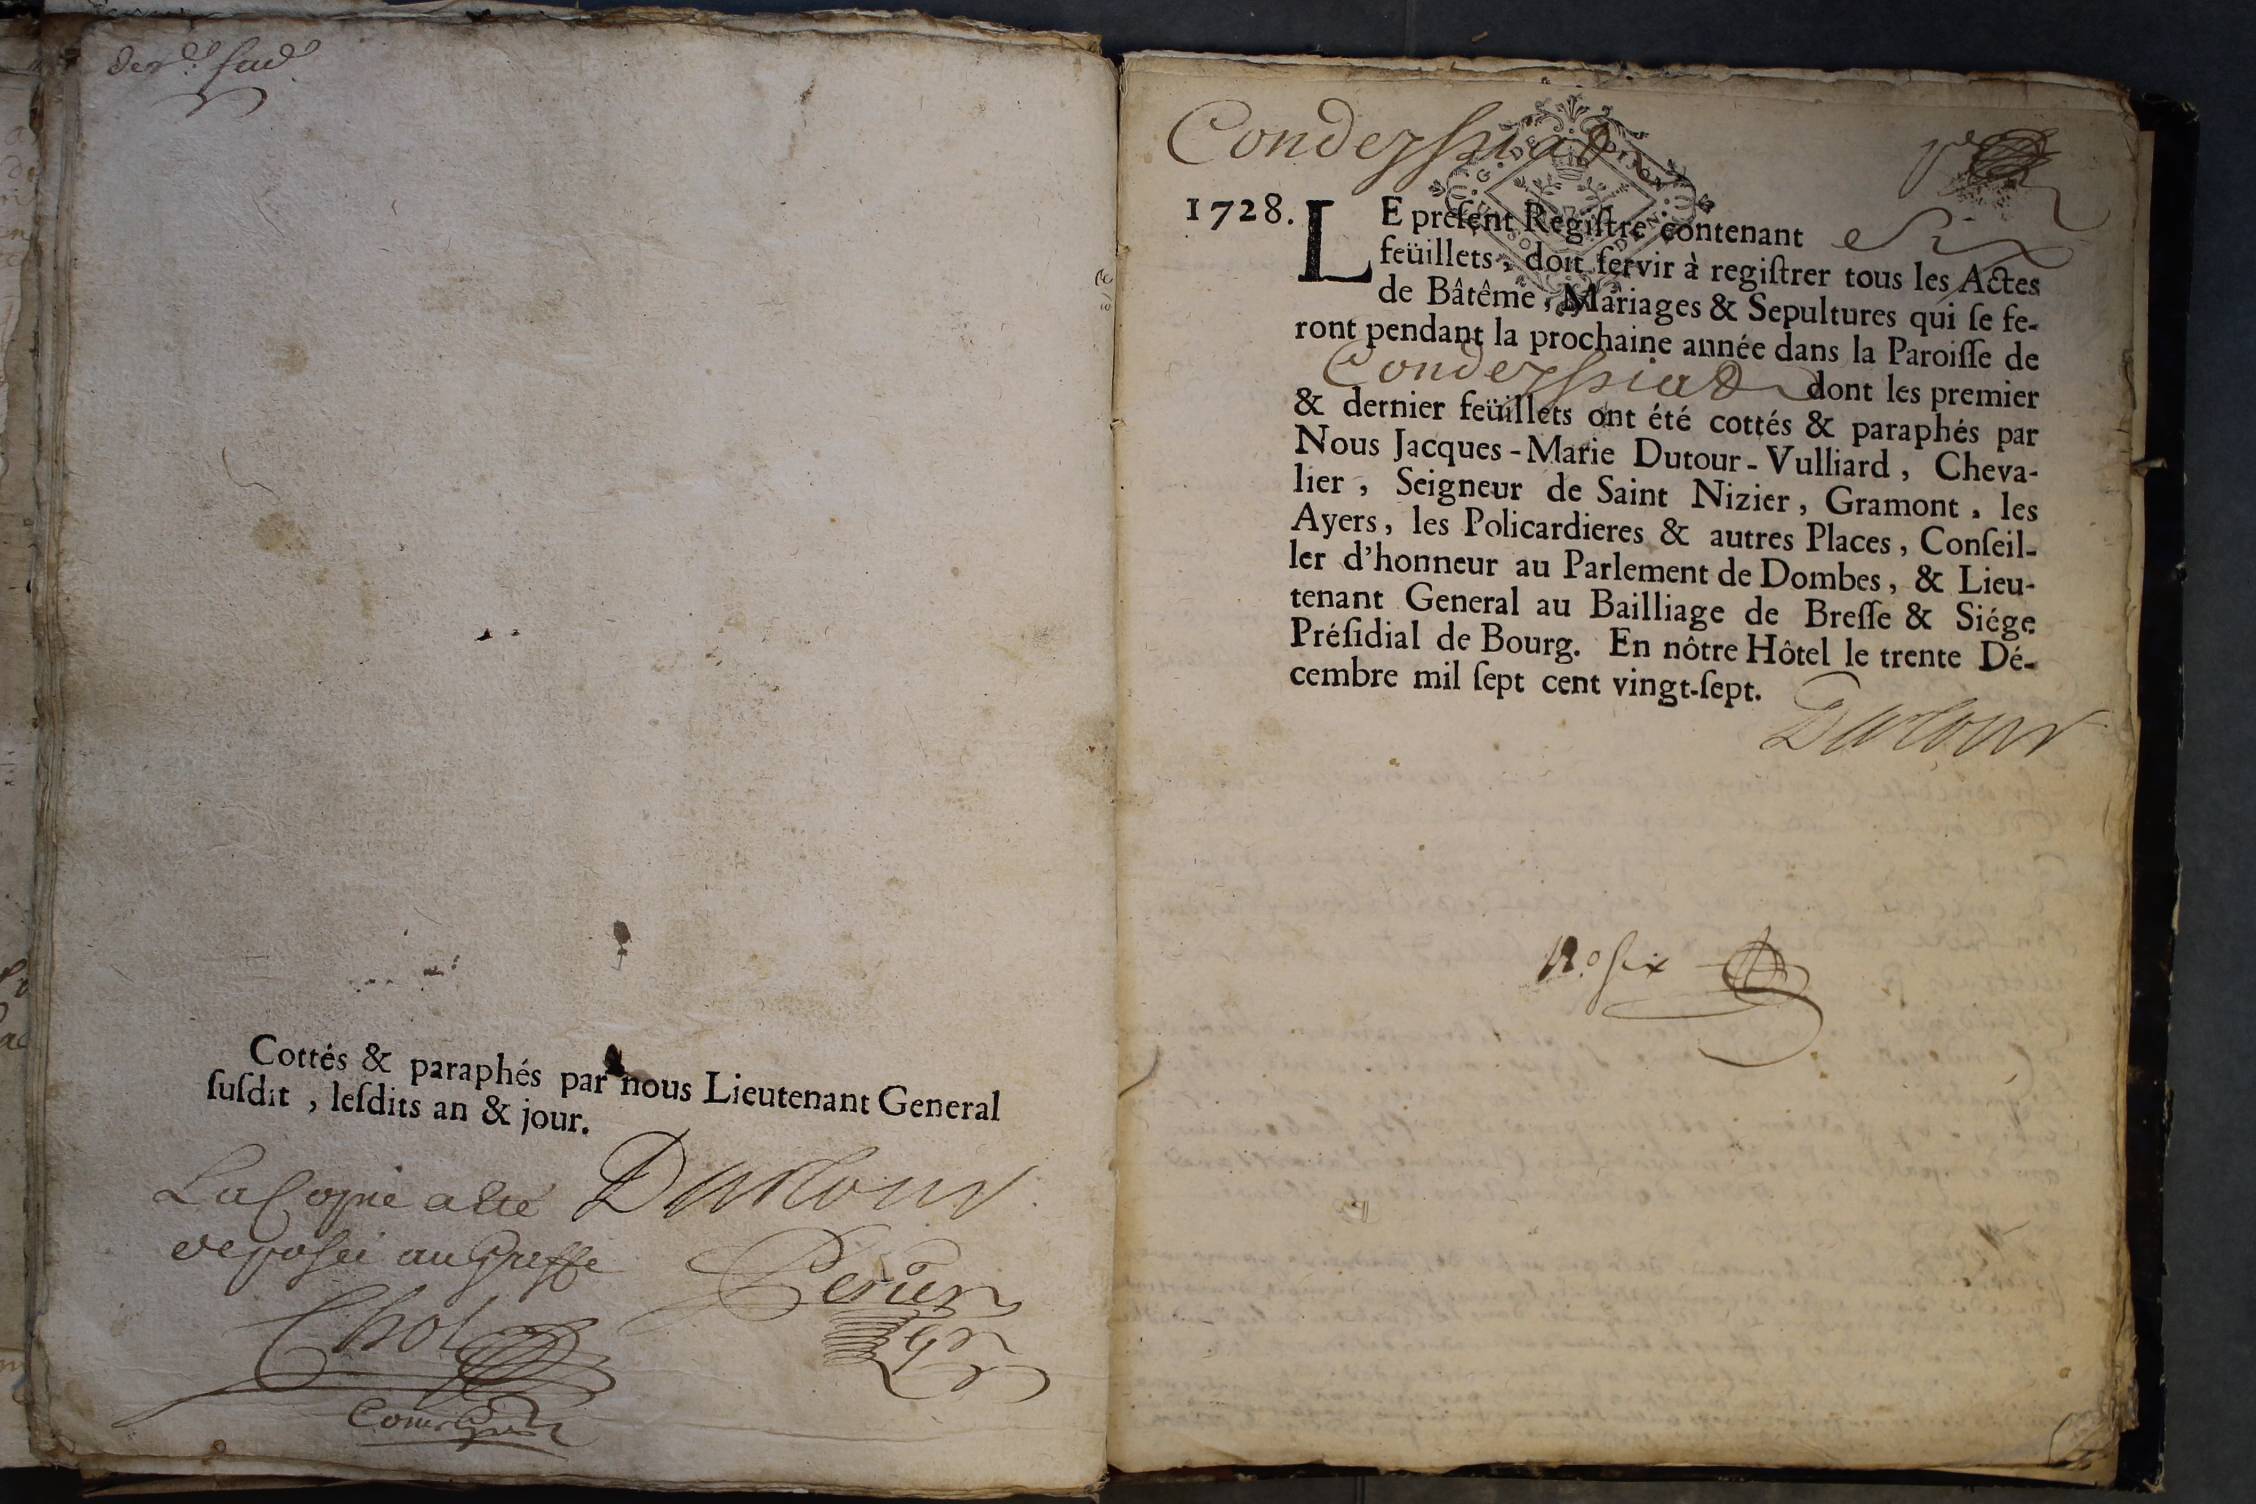 Cottés & paraphés par nous Lieutenant General
ſuſdit , leſdits an & jour.
La Copie a été
deposée au Greffe
Dutour
Perier
Chol
Condeyssiad
1728.
LE preſent Regiſtre contenant six
feüillets, doit ſervir à regiſtrer tous les Actes
de Bâtême, Mariages & Sepultures qui ſe fe-
ront pendant la prochaine année dans la Paroiſſe de
Condeyssiad dont les premier
& dernier feüillets ont été cottés & paraphés par
Nous Jacques-Marie Dutour-Vulliard, Cheva-
lier , Seigneur de Saint Nizier, Gramont , les
Ayers, les Policardieres & autres Places, Conſeil-
ler d'honneur au Parlement de Dombes, & Lieu-
tenant General au Bailliage de Breſſe & Siége
Préſidial de Bourg. En nôtre Hôtel le trente Dé-
cembre mil ſept cent vingt-ſept.
Dutour
N.º six